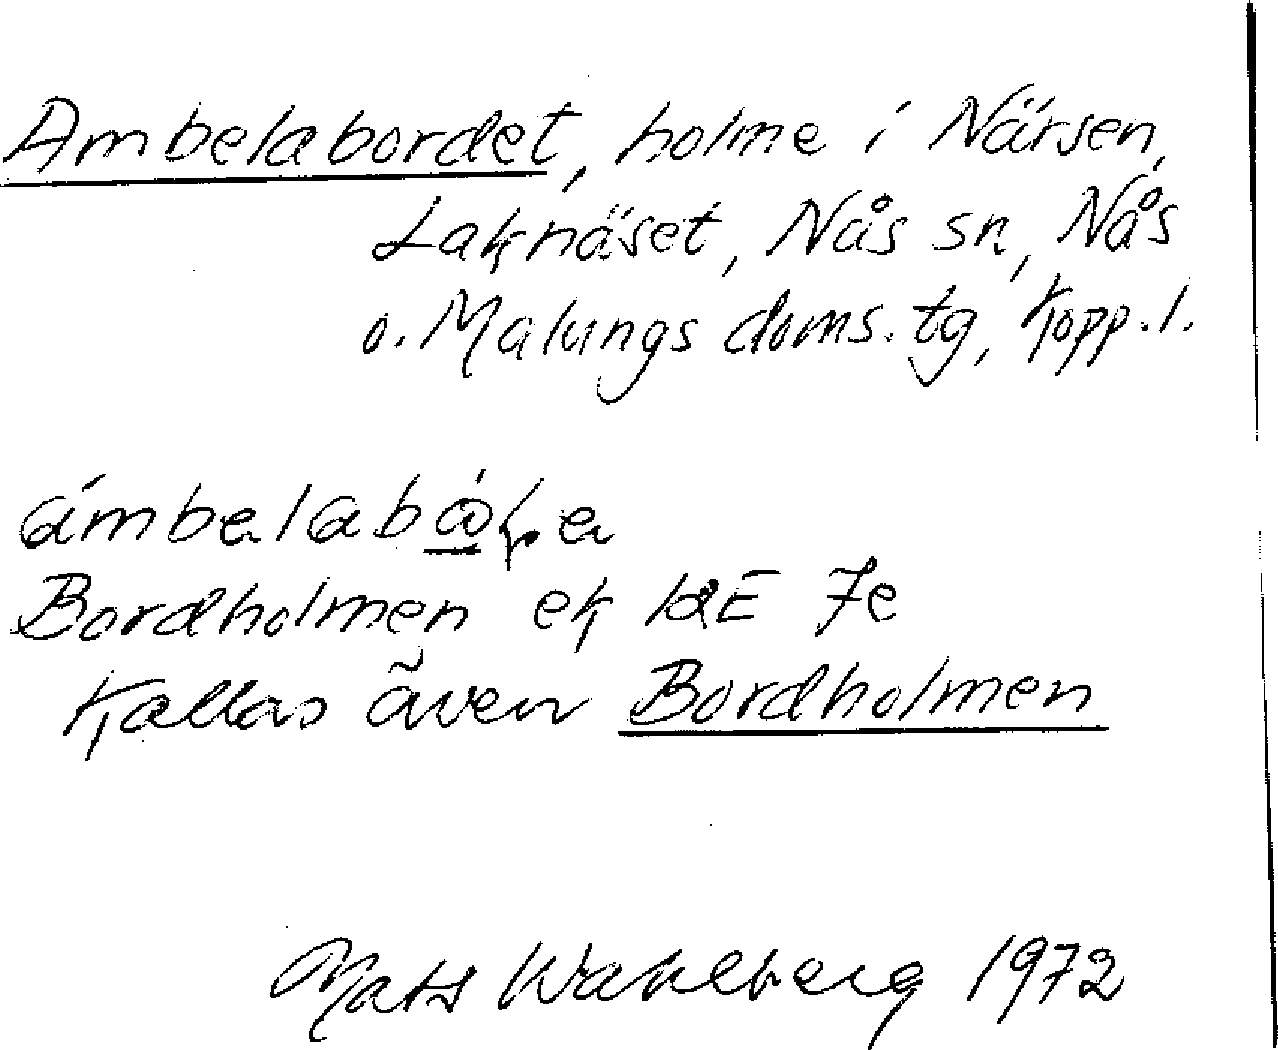 Ambelabordet, holme i Närsen,
Laknäset, Nås sn, Nås
o. Malungs doms. tg, Kopp. l.
Bordholmen ek 12E 7e
Kallas även Bordholmen
Mats Wahlberg 1972